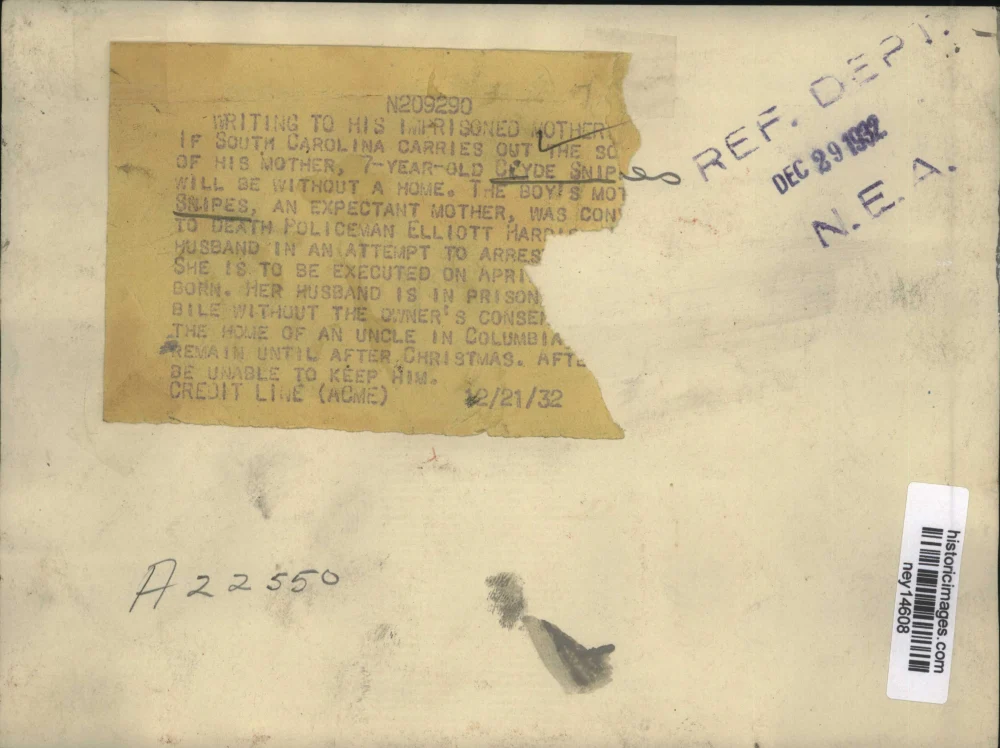 N209290
WRITING TO HIS IMPRISONED MOTHER
IF SOUTH CAROLINA CARRIES OUT THE SC
OF HIS MOTHER, 7-YEAR-OLD CLYDE SNIPes
WILL BE WITHOUT A HOME. THE BOY'S MOT
SNIPES, AN EXPECTANT MOTHER, WAS CONV
TO DEATH POLICEMAN ELLIOTT HARRIS
HUSBAND IN AN ATTEMPT TO ARRES
SHE IS TO BE EXECUTED ON APRI
BORN. HER HUSBAND IS IN PRISON
BILE WITHOUT THE OWNER'S CONSEN
THE HOME OF AN UNCLE IN COLUMBIA
REMAIN UNTIL AFTER CHRISTMAS. AFTE
BE UNABLE TO KEEP HIM.
CREDIT LINE (ACME) 12/21/32
REF. DEPT.
DEC 29 1932
N. E. A.
A22550
historicimages.com
ney14608